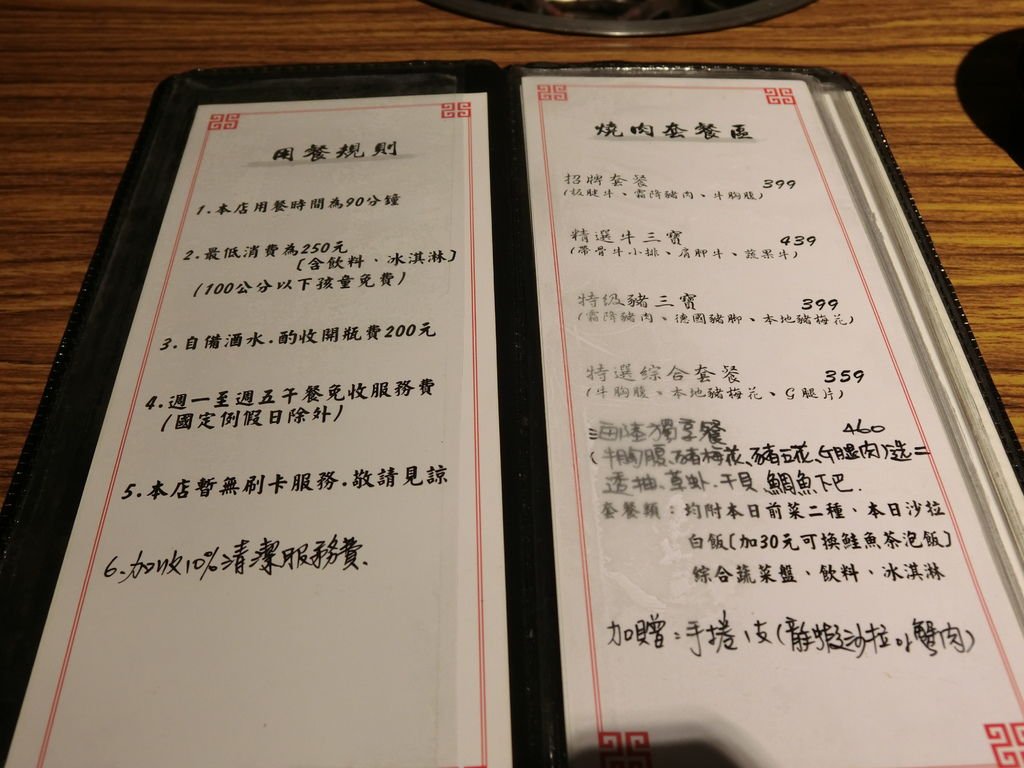 用餐規則
1.本店用餐時間為90分鐘
2.最低消費為250元
[含飲料、冰淇淋]
(100公分以下孩童免費)
3.自備酒水.酌收開瓶費200元
4.週一至週五午餐免收服務費
(國定例假日除外)
5.本店暫無刷卡服務.敬請見諒
6.加收10%清潔服務費.
燒肉套餐區
招牌套餐 399
(板腱牛、霜降豬肉、牛胸腹)
精選牛三寶 439
(帶骨牛小排、肩胛牛、蔬果牛)
特級豬三寶 399
(霜降豬肉、德國豬腳、本地豬梅花)
特選綜合套餐 359
(牛胸腹、本地豬梅花、G腿片)
海陸獨享餐 460
(牛胸腹、豬梅花、豬五花、G腿肉)选二
透抽.草虾.干貝.鯛魚下巴.
套餐類：均附本日前菜二種、本日沙拉
白飯[加30元可換鮭魚茶泡飯]
綜合蔬菜盤、飲料、冰淇淋
加贈：手捲1支(龍蝦沙拉or蟹肉)